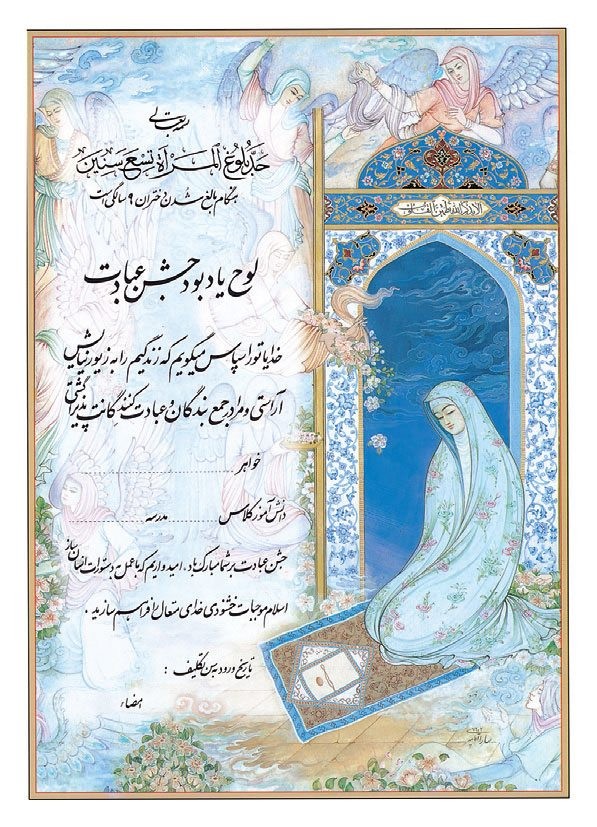 حَدُّ بُلُوغِ المَرأَةِ تِسعُ سِنینَ
هنگام بالغ شدن دختران ۹ سالگی است
الا بذکر الله تطمئن القلوب
لوح یادبود جشن عبادت
خدایا تو را سپاس میگویم که زندگیم را به زیور نیایش
آراستی و مرا در جمع بندگان و عبادت کنندگانت پذیرا گشتی
خواهر
دانش آموز کلاس مدرسه
جشن عبادت بر شما مبارک باد. امیدواریم که با عمل به دستورات انسان ساز
اسلام موجبات خشنودی خدای متعال را فراهم سازید.
تاریخ ورود به سن تکلیف :
امضاء